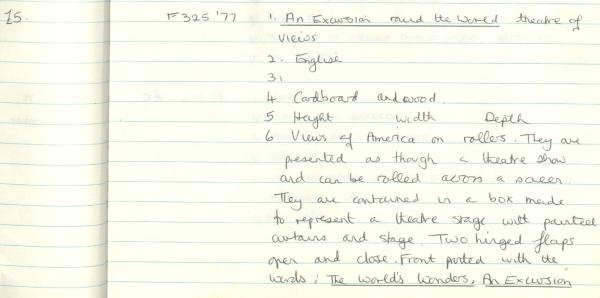 15. F325 '77 1. An Excursion round the World theatre of
views
2. English
3.
4 Cardboard and wood.
5 Height width Depth
6 Views of America on rollers. They are
presented as though a theatre show
and can be rolled across a screen.
They are contained in a box made
to represent a theatre stage with painted
curtains and stage. Two hinged flaps
open and close. Front printed with the
words; The World's Wonders, An Excursion